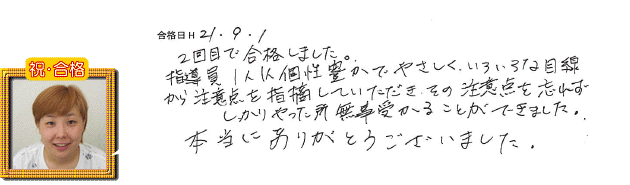 合格日 H 21.9.1
2回目で合格しました。
祝・合格
指導員1人1人個性豊かでやさしく、いろいろな目線
から注意点を指摘していただき、その注意点を忘れず
しっかりやった所無事受かることができました。
本当にありがとうございました。